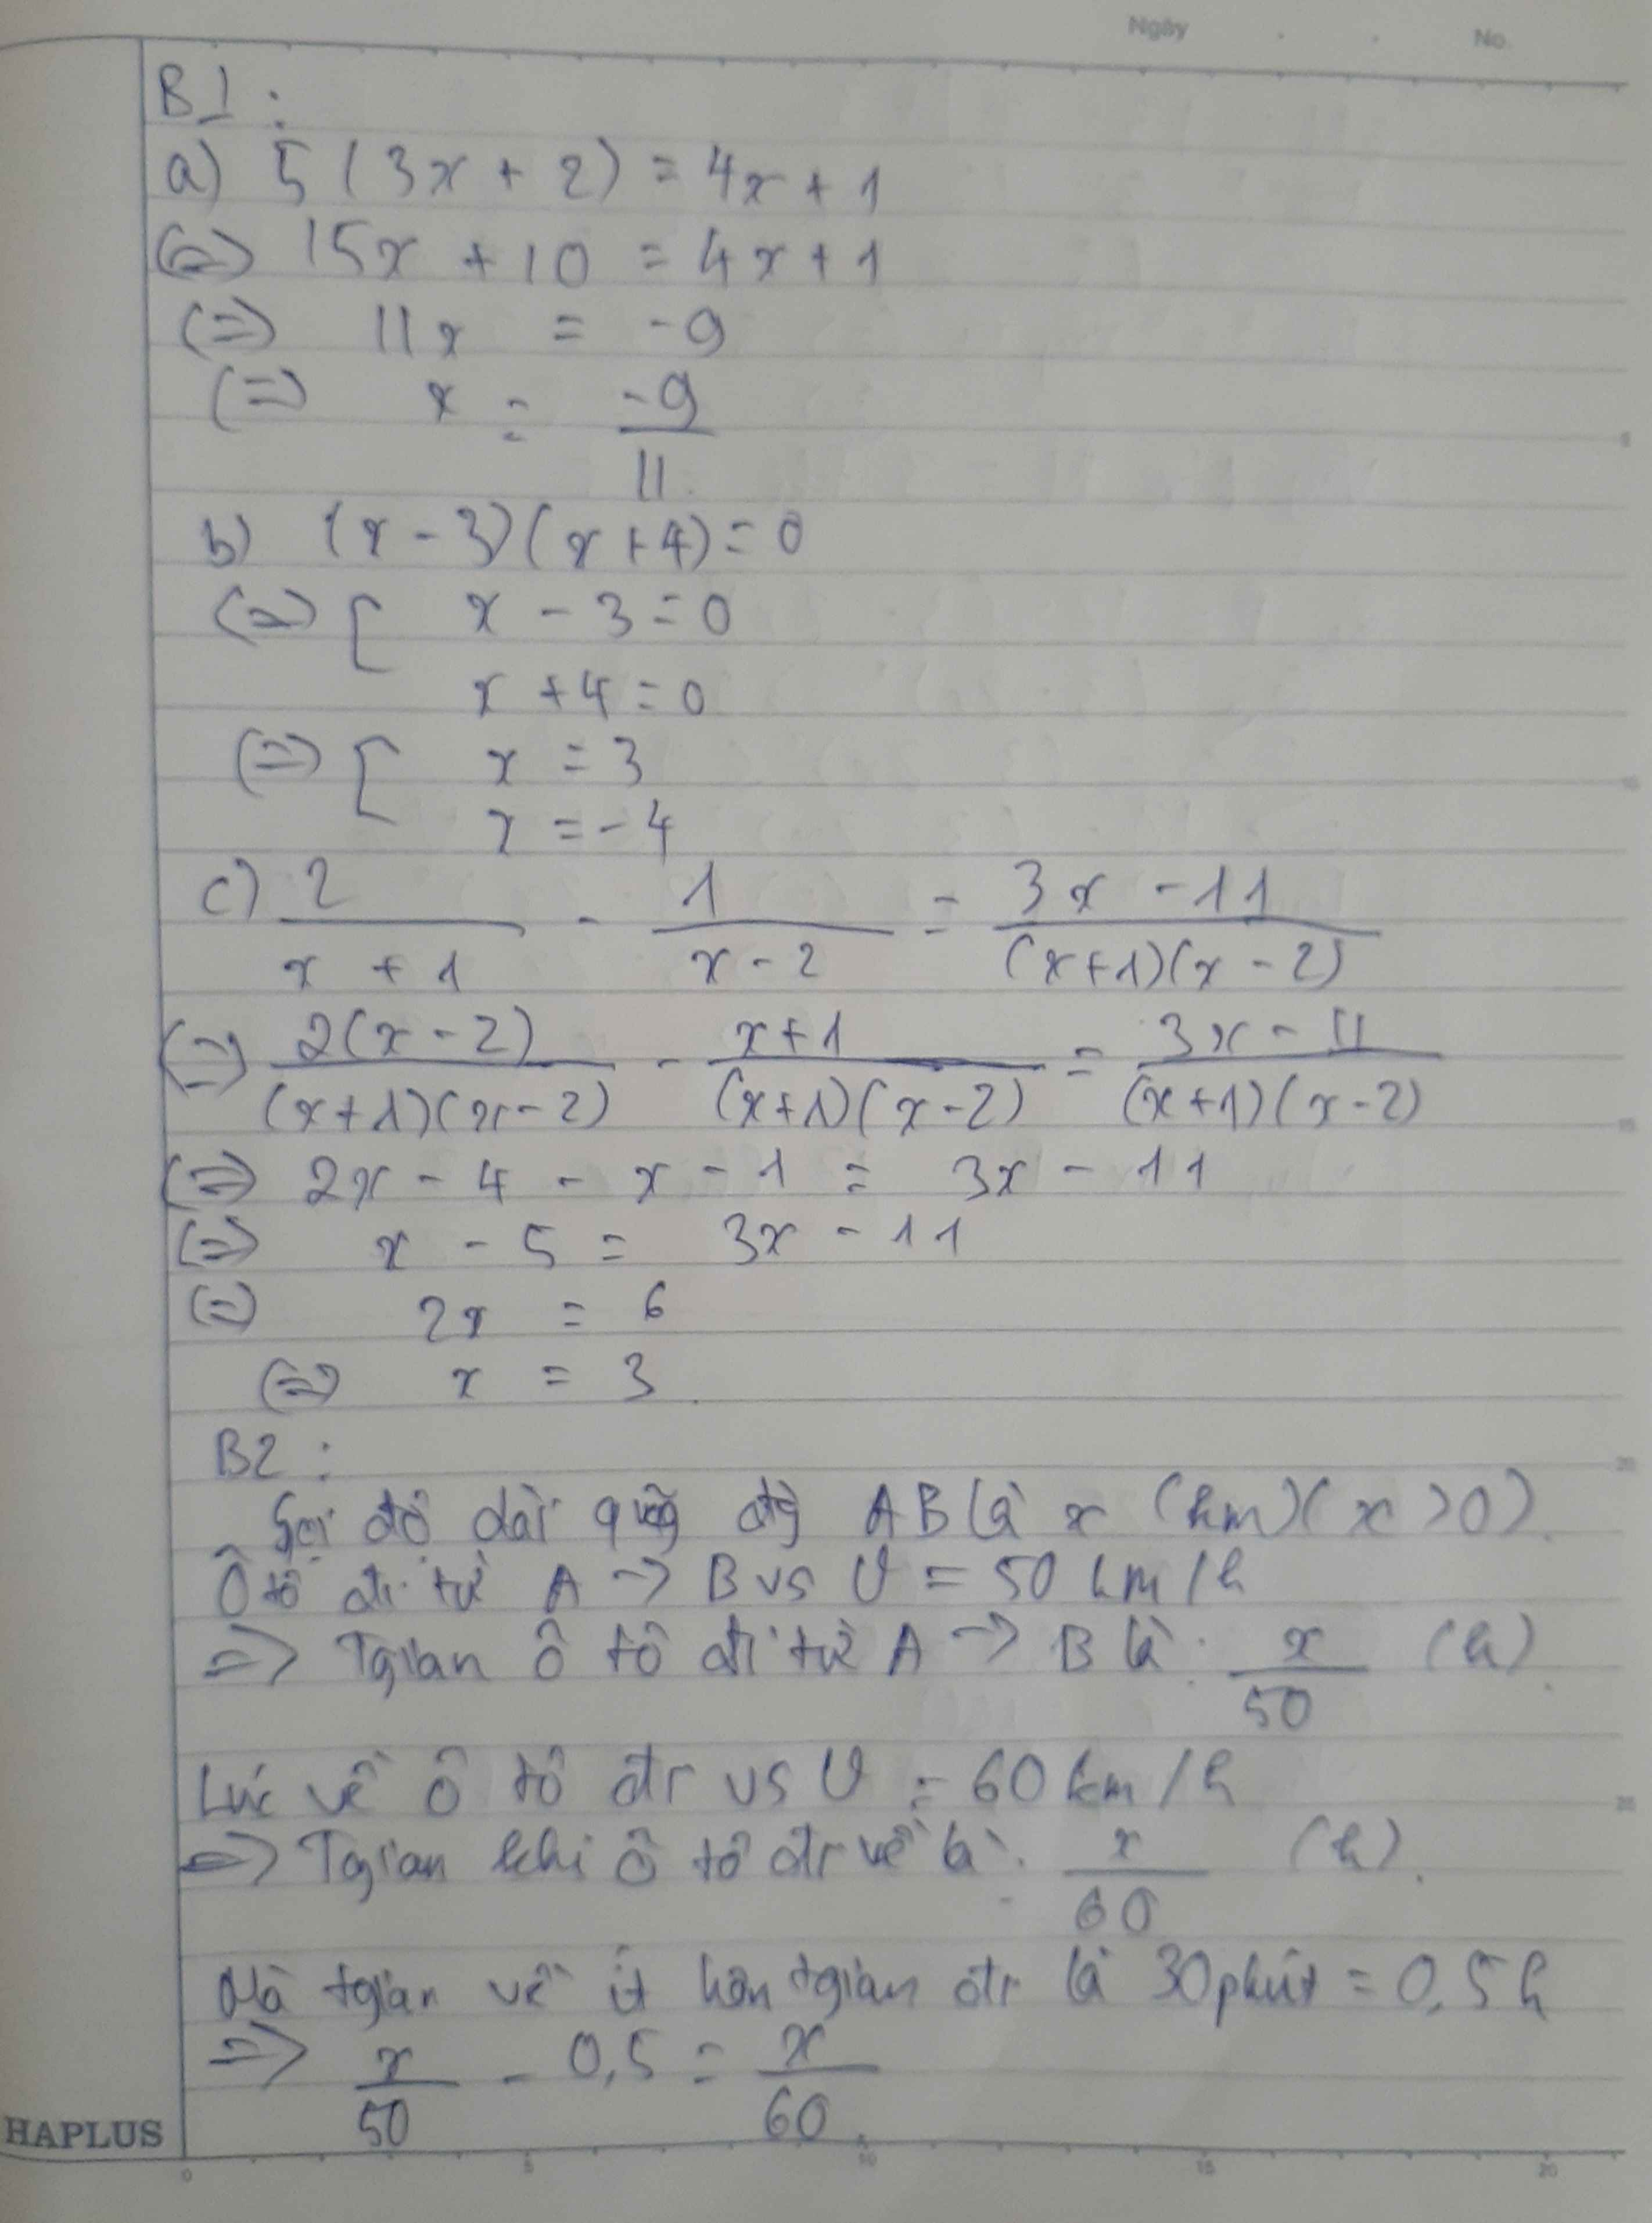 Ngày . . No.
B1:
a) 5(3x + 2) = 4x + 1
(=) 15x + 10 = 4x + 1
(=) 11x = -9
(=) x = -9/11
b) (x - 3)(x + 4) = 0
(=) [ x - 3 = 0
x + 4 = 0
(=) [ x = 3
x = -4
c) 2/(x + 1) - 1/(x - 2) = (3x - 11)/((x+1)(x - 2))
(=) 2(x - 2)/((x+1)(x-2)) - (x+1)/((x+1)(x-2)) = (3x - 11)/((x+1)(x-2))
(=) 2x - 4 - x - 1 = 3x - 11
(=) x - 5 = 3x - 11
(=) 2x = 6
(=) x = 3
B2:
Gọi độ dài quãg đg AB là x (km)(x > 0).
Ô tô đi từ A -> B vs V = 50 km/h
=> Tgian ô tô đi từ A -> B là: x/50 (h).
Lúc về ô tô đi vs V = 60 km/h
=> Tgian khi ô tô đi về là: x/60 (h).
Mà tgian về ít hơn tgian đi là 30 phút = 0,5 h
=> x/50 - 0,5 = x/60
HAPLUS
0 5 10 15 20